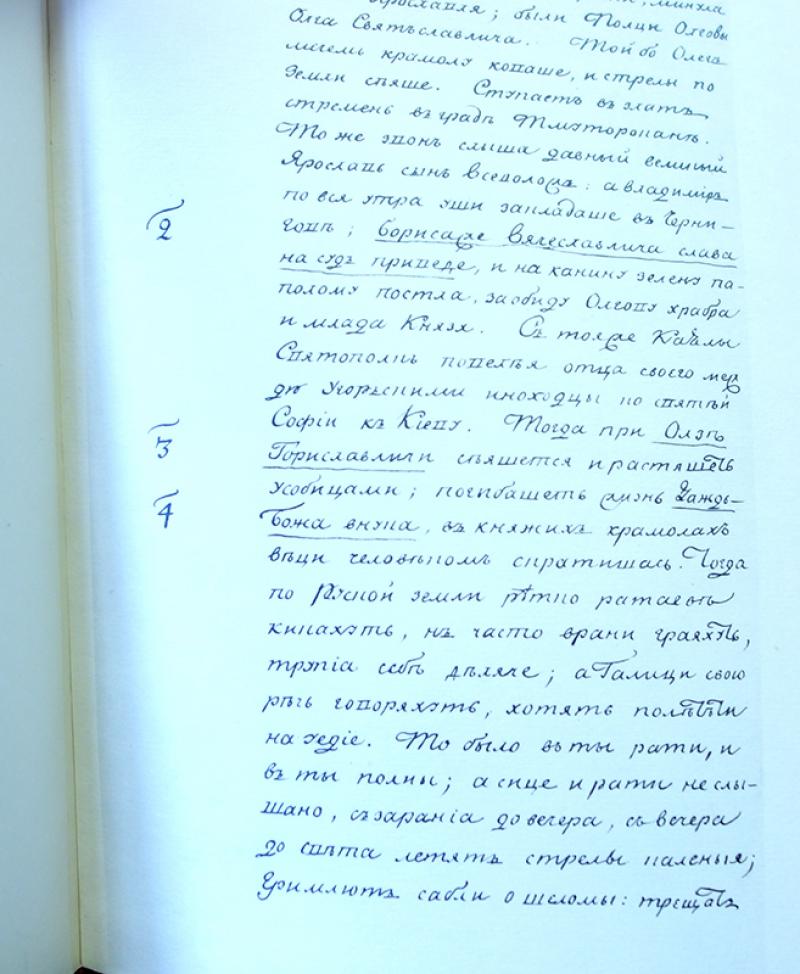 Ярославля; были Полци Олговы
Олга Святъславлича. Той бо Олегъ
мечемъ крамолу коваше, и стрелы по
земли сѣяше. Ступаетъ въ златъ
стремень въ градѣ Тмуторокань.
То же звонъ слыша давный великый
Ярославь сынъ Всеволожъ: а Владиміръ
по вся утра уши закладаше въ Черни-
2 говѣ; Бориса же Вячеславлича слава
на судъ приведе, и на канину зелену па-
полому постла, за обиду Олгову храбра
и млада Князя. Съ тояже Каялы
Святополкь повелѣя отца своего меж
ду Угорьскими иноходцы ко святѣй
Софіи къ Кіеву. Тогда при Олзѣ
3 Гориславличи сѣяшется и растяшеть
усобицами; погибашеть жизнь Даждь-
4 Божа внука, въ княжихъ крамолахъ
вѣци человѣкомъ скратишась. Тогда
по Руской земли рѣтко ратаевѣ
кикахуть, нъ часто врани граяхуть,
трупіа себѣ дѣляче; а Галици свою
рѣчь говоряхуть, хотять полѣтѣти
на уедіе. То было въ ты рати, и
въ ты полкы; а сице и рати не слы-
шано, съ зараніа до вечера, съ вечера
до свѣта летятъ стрелы каленыя;
гримлютъ сабли о шеломы: трещатъ